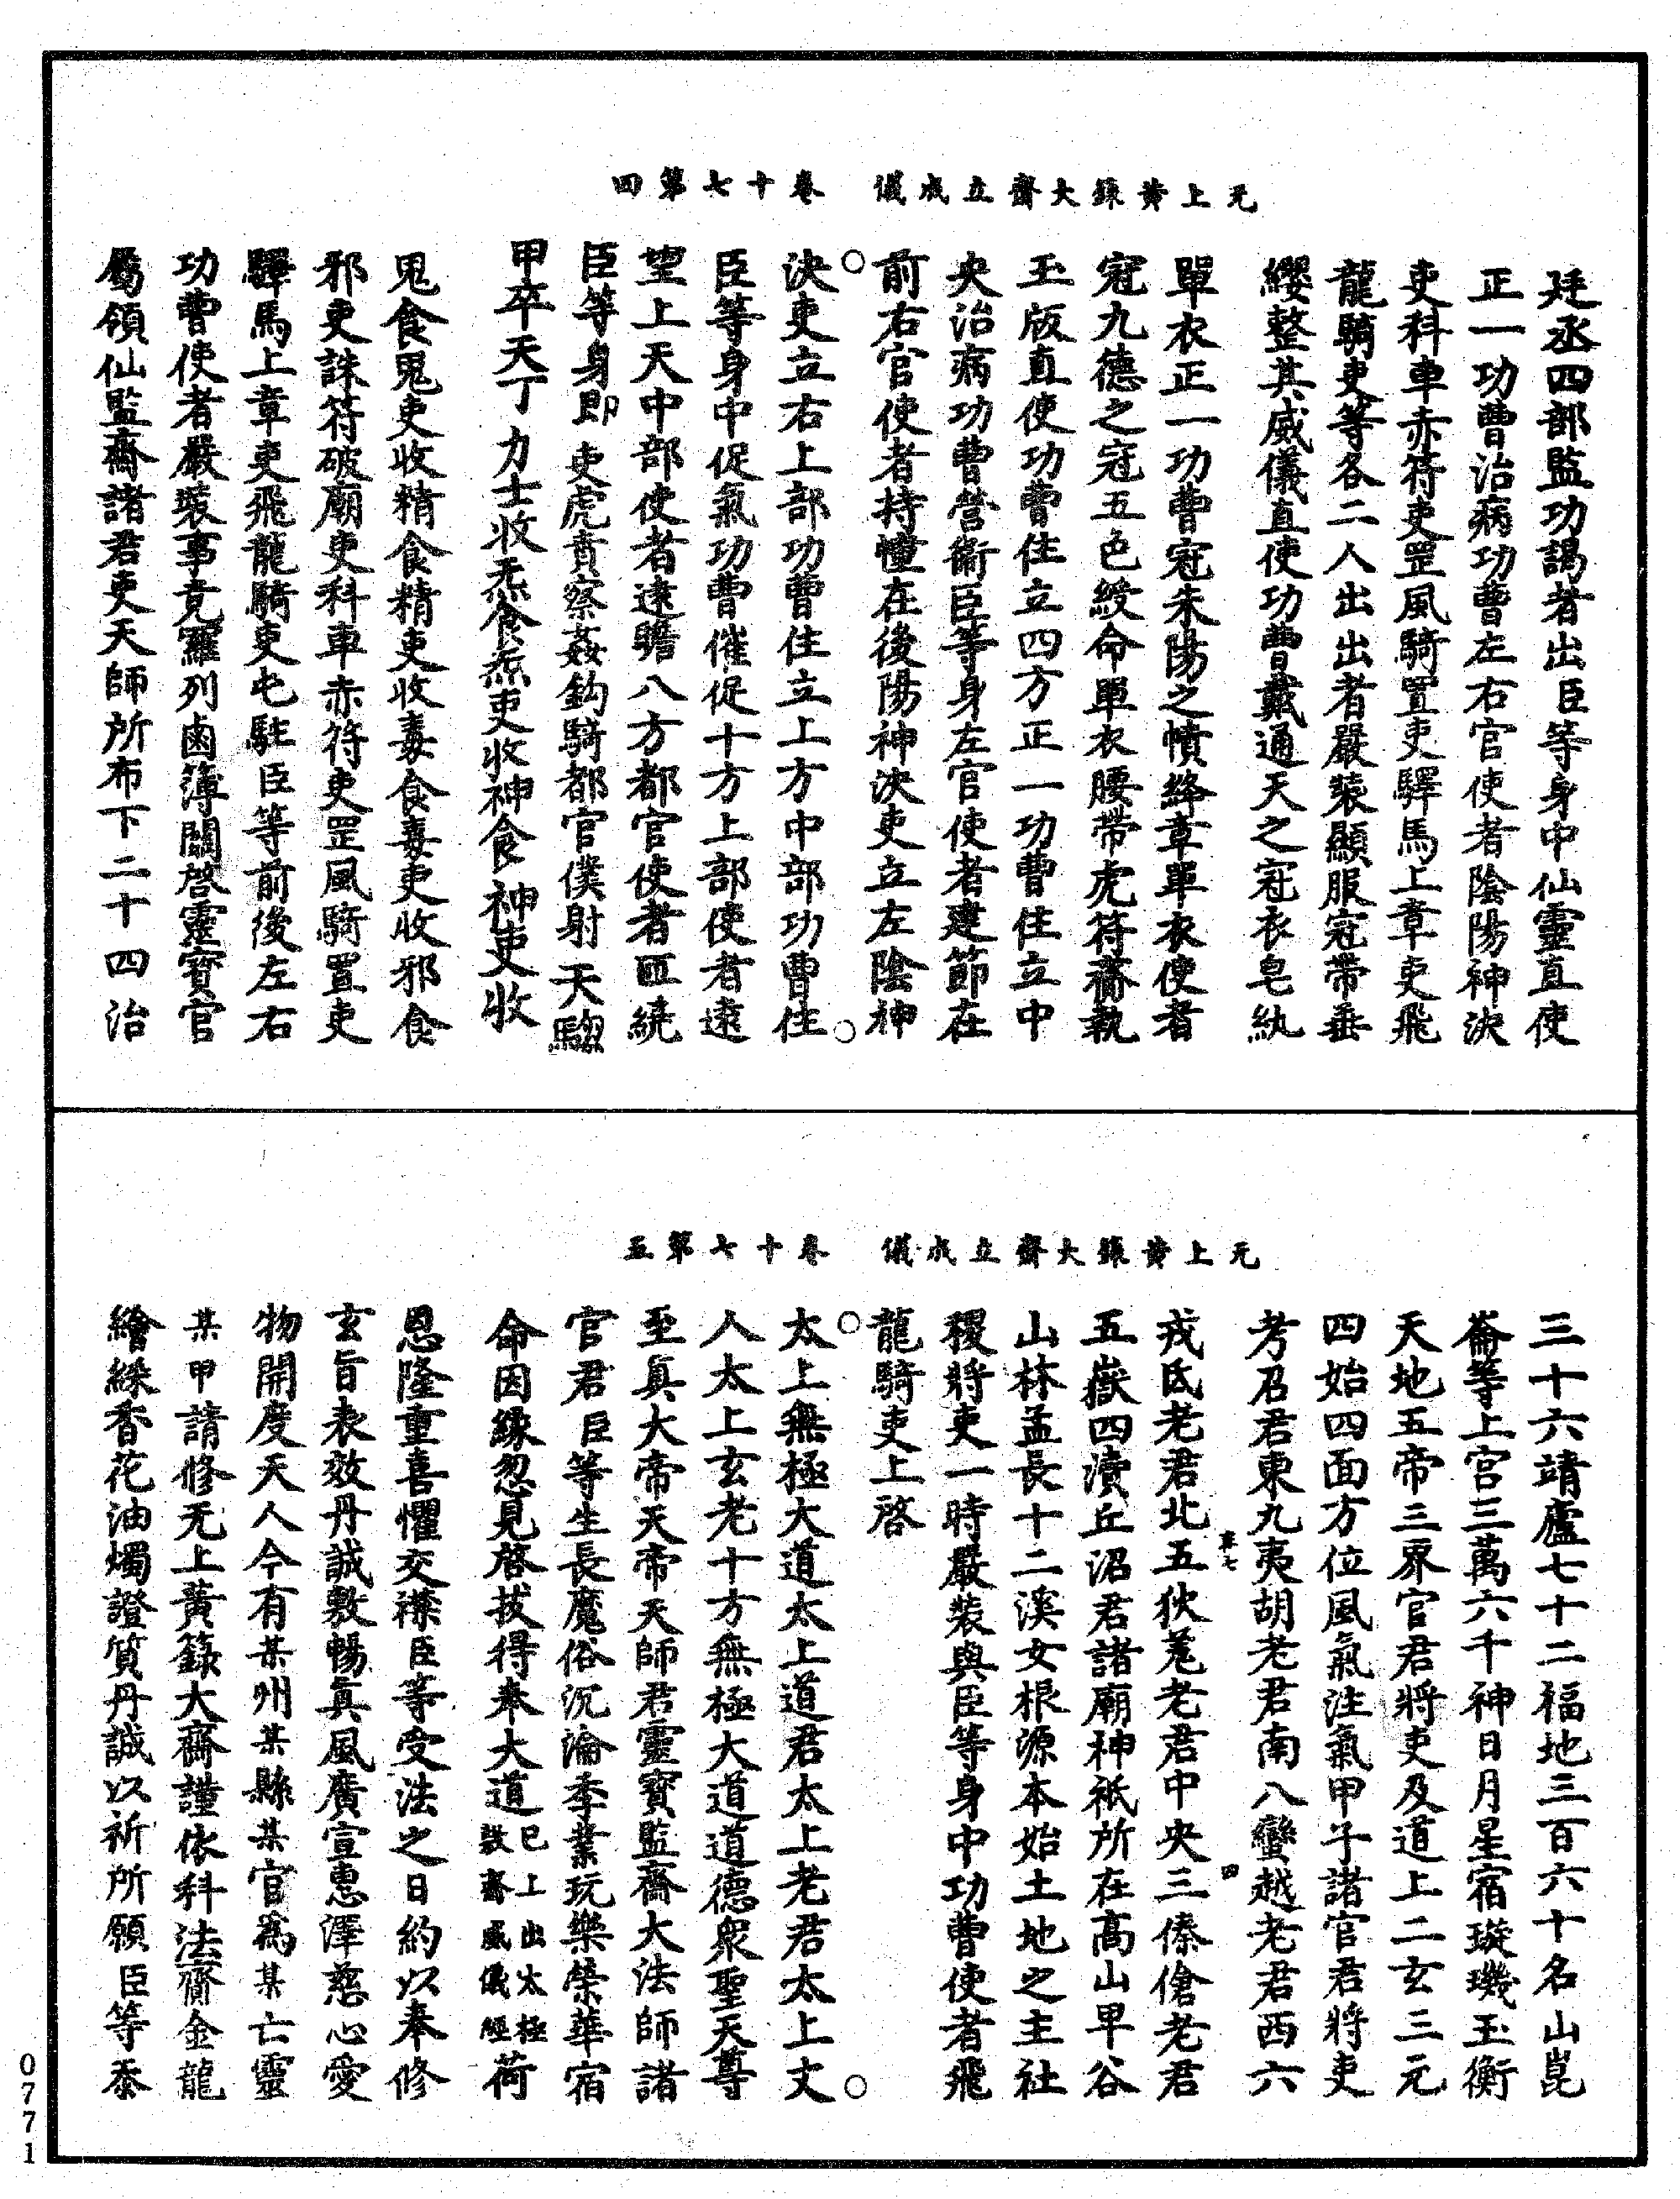 无上黃籙大齋立成儀　卷十七第四
廷丞四部監功謁者出臣等身中仙靈直使
正一功曹治病功曹左右官使者陰陽神決
吏科車赤符吏罡風騎置吏驛馬上章吏飛
龍騎吏等各二人出出者嚴裝顯服冠帶垂
纓整其威儀直使功曹戴通天之冠衣皂紈
單衣正一功曹冠朱陽之幘絳章單衣使者
冠九德之冠五色綬命單衣腰帶虎符齎執
玉版直使功曹住立四方正一功曹住立中
央治病功曹營衛臣等身左官使者建節在
前右官使者持幢在後陽神決吏立左陰神
決吏立右上部功曹住立上方中部功曹住
臣等身中促氣功曹催促十方上部使者遠
望上天中部使者遠瞻八方都官使者匝繞
臣等身即吏虎賁察姦鈎騎都官僕射天騶
甲卒天丁力士收炁食炁吏收神食神吏收
鬼食鬼吏收精食精吏收毒食毒吏收邪食
邪吏誅符破廟吏科車赤符吏罡風騎置吏
驛馬上章吏飛龍騎吏屯駐臣等前後左右
功曹使者嚴裝事竟羅列鹵簿關啓靈寶官
屬領仙監齋諸君吏天師所布下二十四治
无上黃籙大齋立成儀　卷十七第五
三十六靖廬七十二福地三百六十名山崑
崙等上宮三萬六千神日月星宿璇璣玉衡
天地五帝三界官君將吏及道上二玄三元
四始四面方位風氣注氣甲子諸官君將吏
考召君東九夷胡老君南八蠻越老君西六
戎氐老君北五狄羌老君中央三傣傖老君
五嶽四瀆丘沼君諸廟神祇所在高山旱谷
山林孟長十二溪女根源本始土地之主社
稷將吏一時嚴裝與臣等身中功曹使者飛
龍騎吏上啓
太上無極大道太上道君太上老君太上丈
人太上玄老十方無極大道道德衆聖天尊
至真大帝天帝天師君靈寶監齋大法師諸
官君臣等生長魔俗沉淪季業玩樂榮華宿
命因緣忽見啓拔得奉大道已上出太極敷齋威儀經荷
恩隆重喜懼交襟臣等受法之日約以奉修
玄旨表效丹誠敷暢真風廣宣惠澤慈心愛
物開度天人今有某州某縣某官爲某亡靈
某甲請修无上黃籙大齋謹依科法齎金龍
繒綵香花油燭證質丹誠以祈所願臣等忝
0771